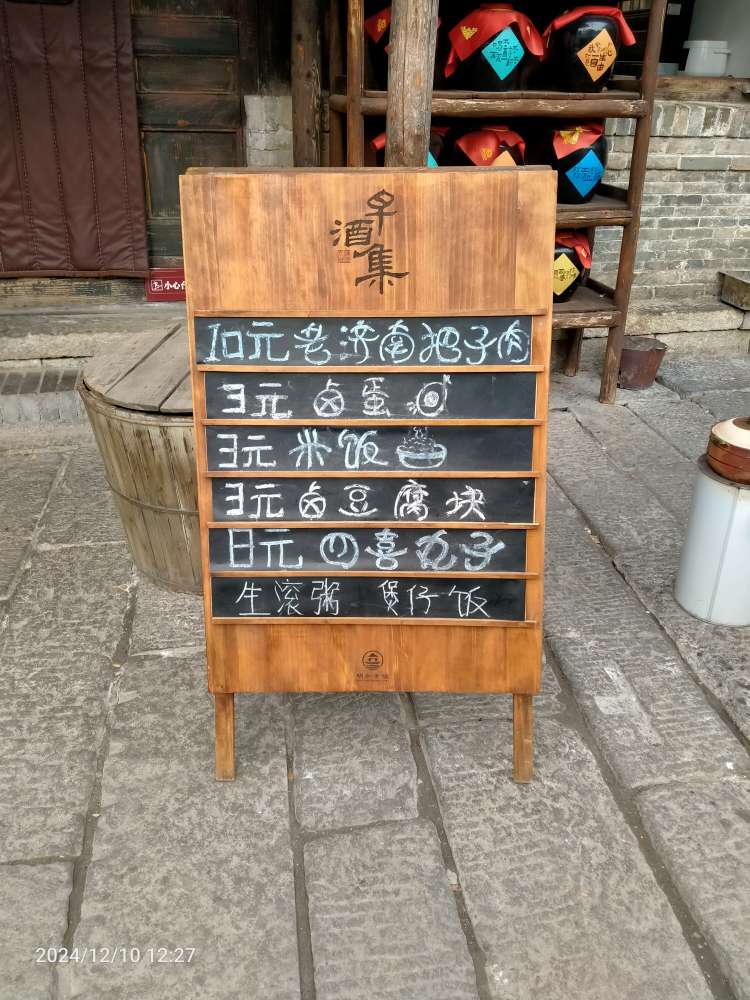 早酒集
10元老济南把子肉
3元卤蛋
3元米饭
3元卤豆腐块
8元四喜丸子
生滚粥 煲仔饭
小心台
2024/12/10 12:27